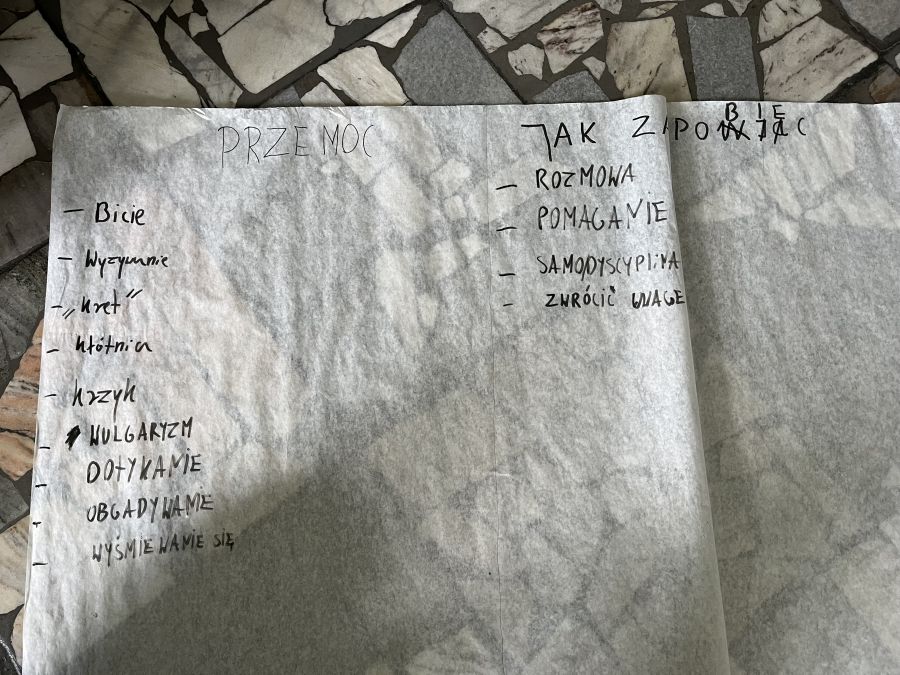 PRZEMOC
- Bicie
- Wyzywanie
- „Kret”
- Kłótnia
- Krzyk
- WULGARYZM
- DOTYKANIE
- OBGADYWANIE
- WYŚMIEWANIE SIĘ
JAK ZAPOBIEC
- ROZMOWA
- POMAGANIE
- SAMODYSCYPLINA
- ZWRÓCIĆ UWAGE